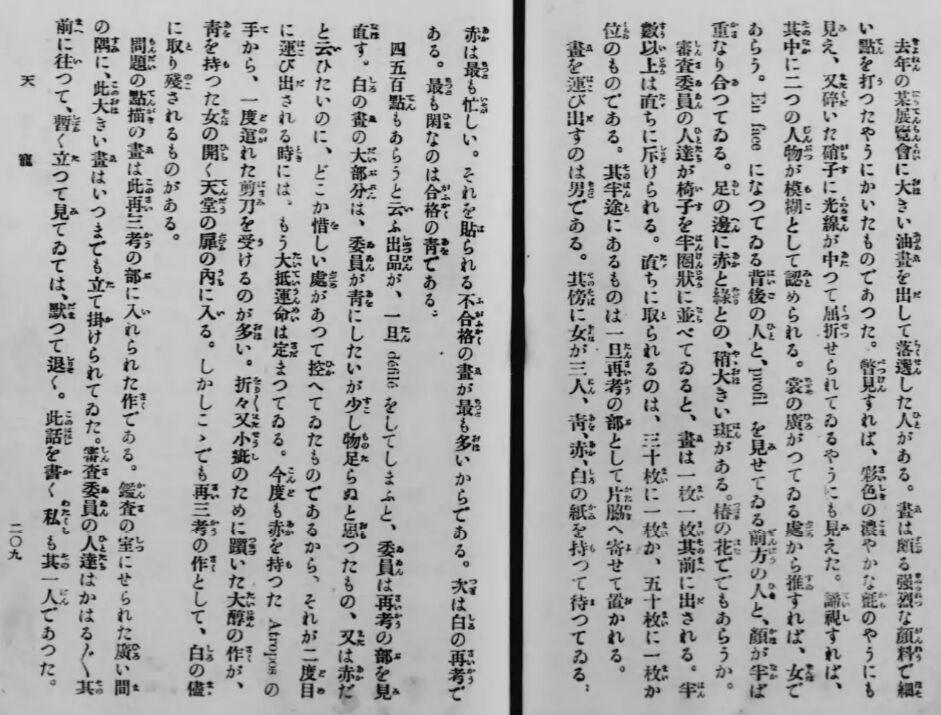 去年の某展覽會に大きい油畫を出して落選した人がある。畫は頗る强烈な顏料で細
い點を打つたやうにかいたものであつた。瞥見すれば、彩色の濃やかな氈のやうにも
見え、又碎いた硝子に光線が中つて屈折せられてゐるやうにも見えた。諦視すれば、
其中に二つの人物が模糊として認められる。裳の廣がつてゐる處から推すれば、女で
あらう。En face になつてゐる背後の人と、profil を見せてゐる前方の人と、顏が半ば
重なり合つてゐる。足の邊に赤と綠との、稍大きい斑がある。椿の花ででもあらうか。
審査委員の人達が椅子を半圈狀に並べてゐると、畫は一枚一枚其前に出される。半
數以上は直ちに斥けられる。直ちに取られるのは、三十枚に一枚か、五十枚に一枚か
位のものである。其半途にあるものは一旦再考の部として片脇へ寄せて置かれる。
畫を運び出すのは男である。其傍に女が三人、靑、赤、白の紙を持つて待つてゐる。
赤は最も忙しい。それを貼られる不合格の畫が最も多いからである。次は白の再考で
ある。最も閑なのは合格の靑である。
四五百點もあらうと云ふ出品が、一旦 défilé をしてしまふと、委員は再考の部を見
直す。白の畫の大部分は、委員が靑にしたいが少し物足らぬと思つたもの、又は赤だ
と云ひたいのに、どこか惜しい處があつて控へてゐたものであるから、それが二度目
に運び出される時には、もう大抵運命は定まつてゐる。今度も赤を持つた Atropos の
手から、一度逭れた剪刀を受けるのが多い。折々又小疵のために躓いた大醇の作が、
靑を持つた女の開く天堂の扉の內に入る。しかしこゝでも再三考の作として、白の儘
に取り殘されるものがある。
問題の點描の畫は此再三考の部に入れられた作である。鑑査の室にせられた廣い間
の隅に、此大きい畫はいつまでも立て掛けられてゐた。審査委員の人達はかはる〴〵其
前に往つて、暫く立つて見てゐては、默つて退く。此話を書く私も其一人であつた。
天寵
二〇九